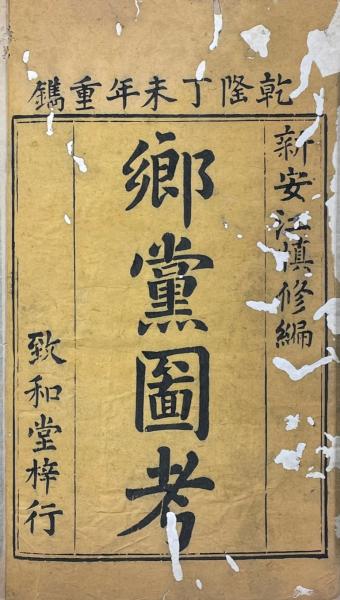 乾隆丁未年重鐫
新安江慎修編
鄉黨圖考
致和堂梓行